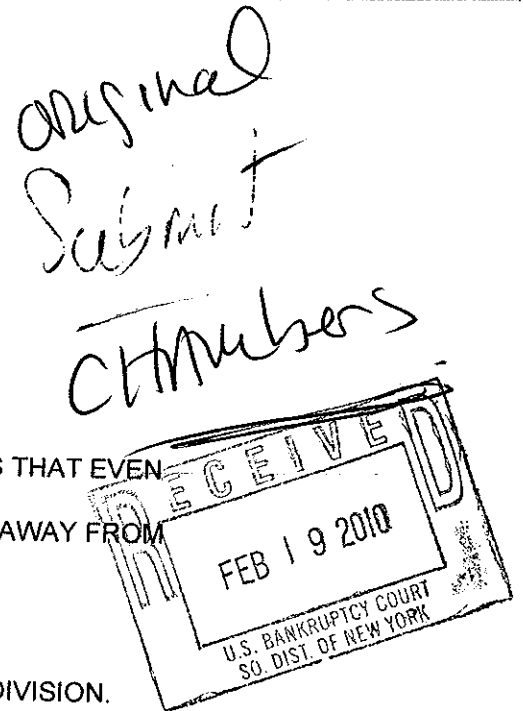 original
Submit
CHAmbers
S THAT EVEN
AWAY FROM
RECEIVED
FEB 19 2010
U.S. BANKRUPTCY COURT
SO. DIST. OF NEW YORK
DIVISION.